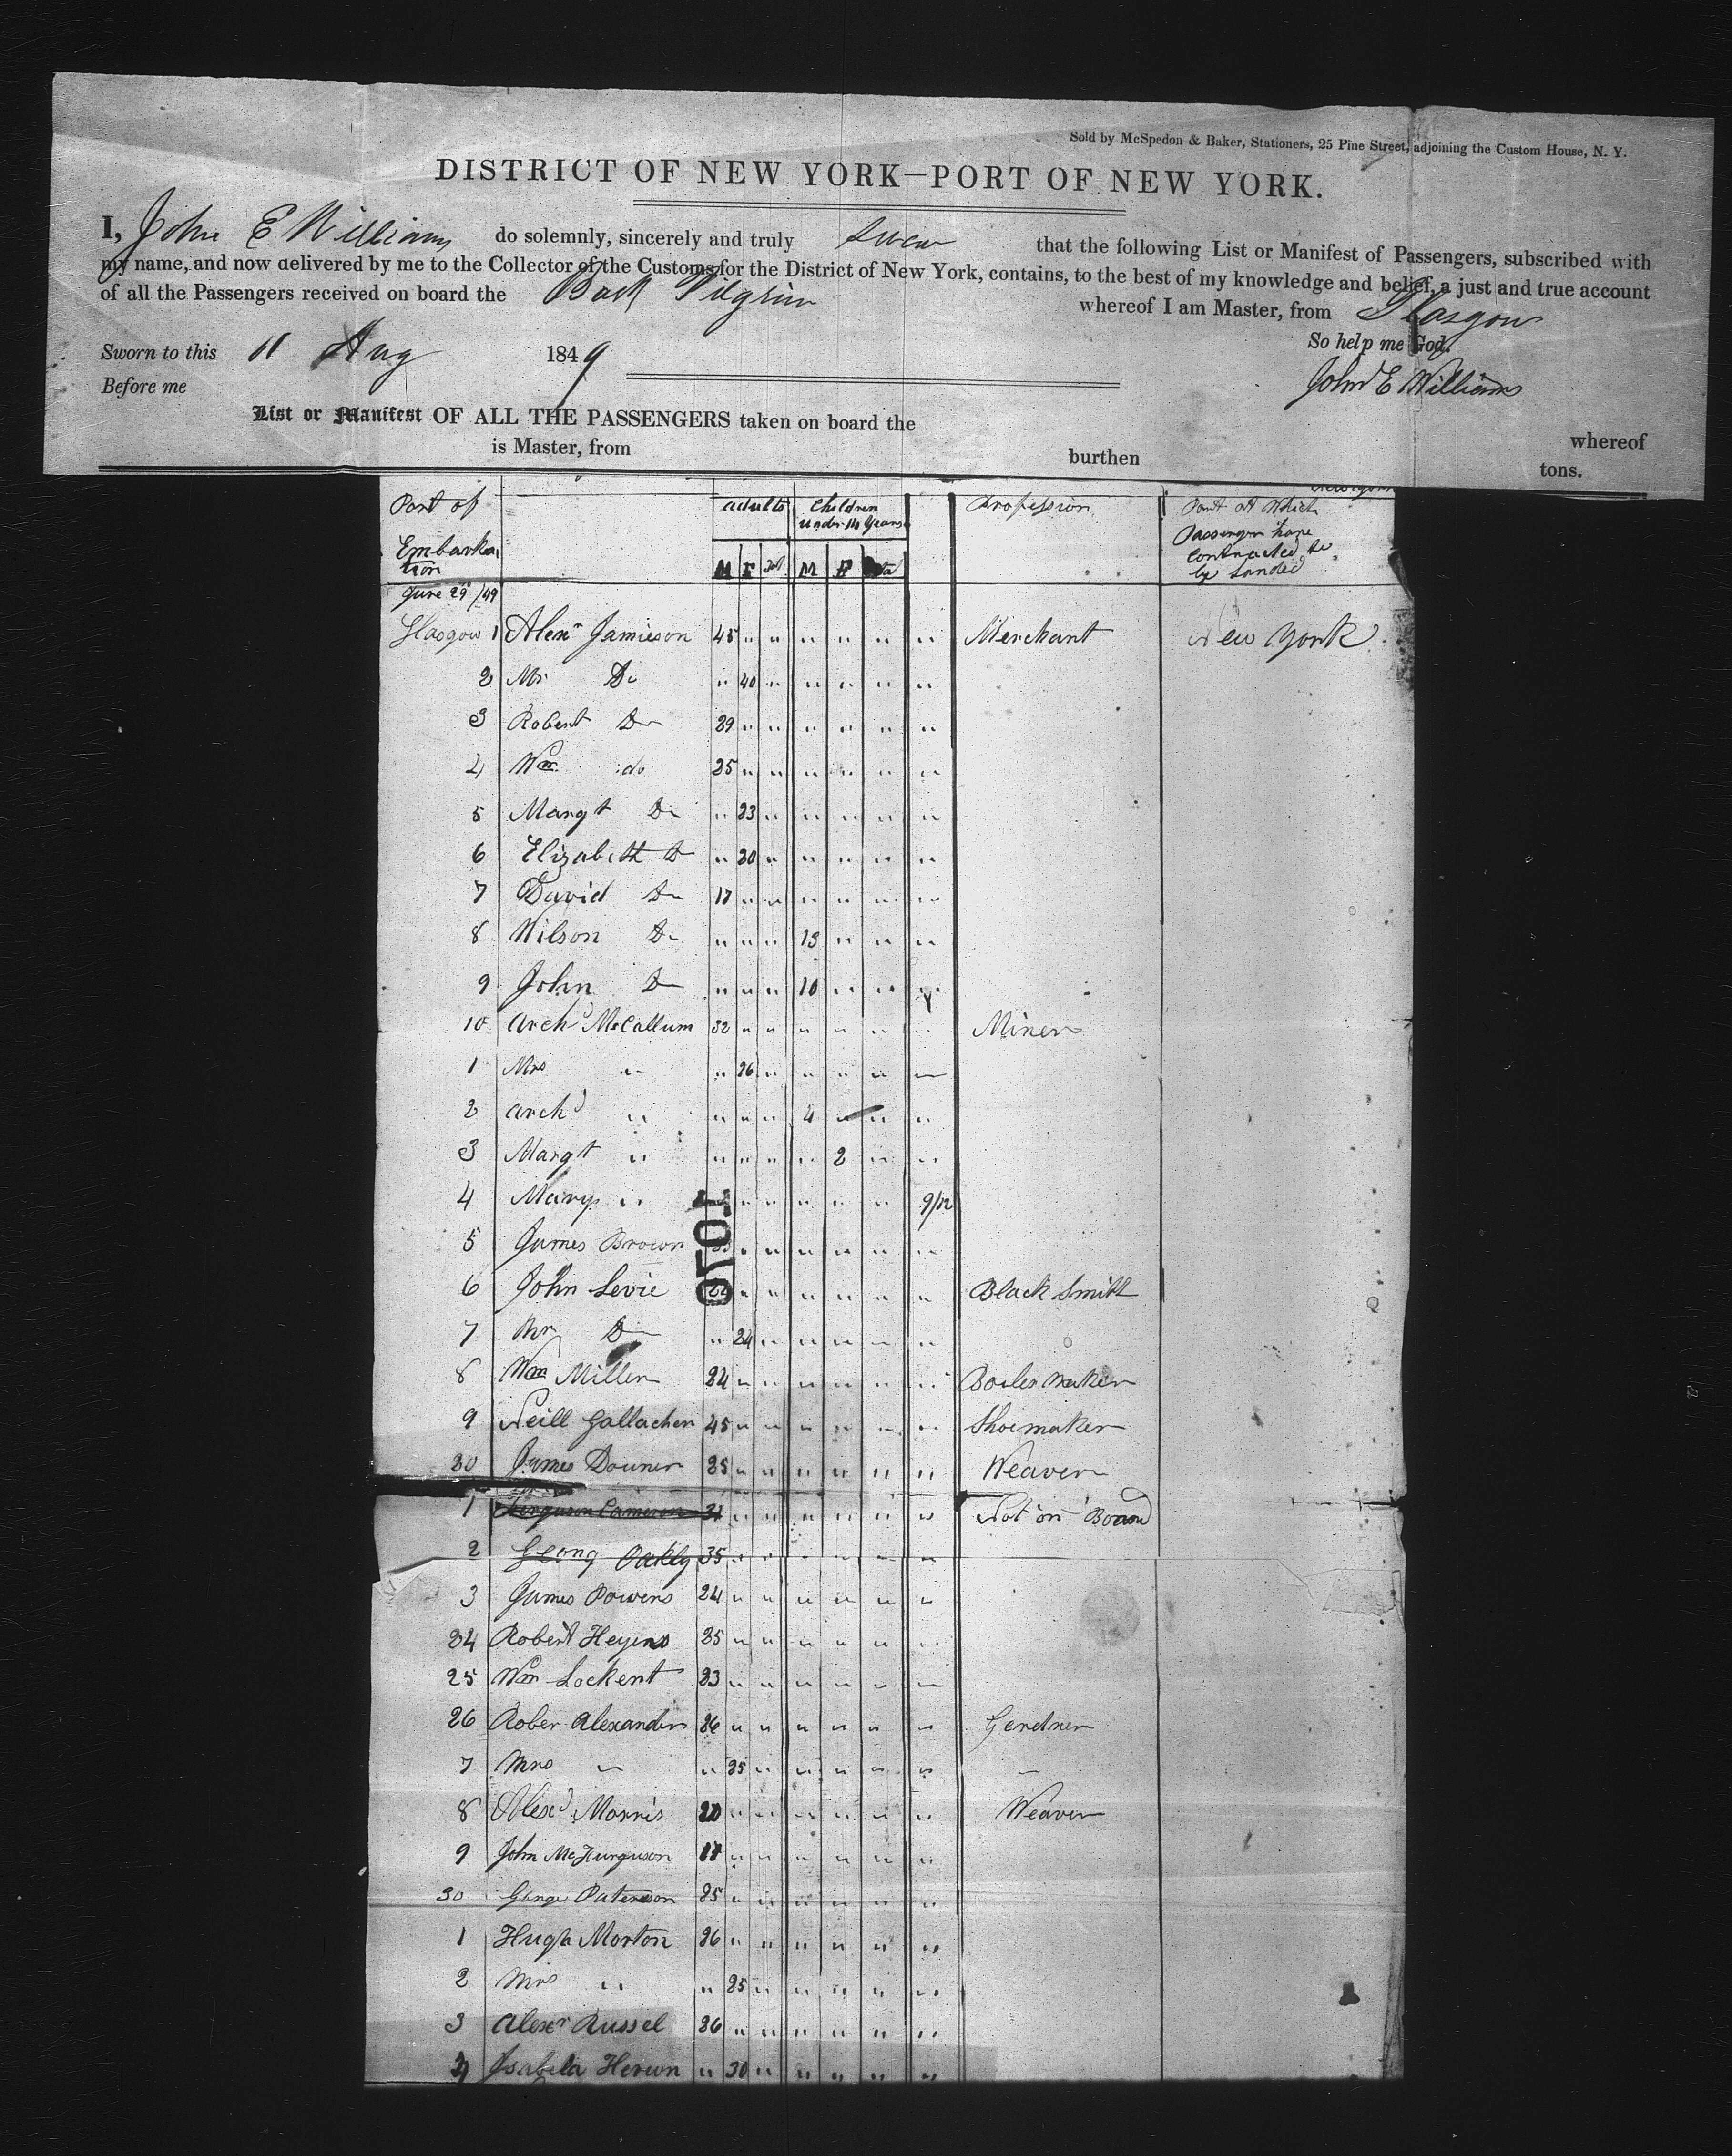 Sold by McSpedon & Baker, Stationers, 25 Pine Street, adjoining the Custom House, N. Y.
DISTRICT OF NEW YORK—PORT OF NEW YORK.
I, John E Williams do solemnly, sincerely and truly swear that the following List or Manifest of Passengers, subscribed with
my name, and now delivered by me to the Collector of the Customs for the District of New York, contains, to the best of my knowledge and belief, a just and true account
of all the Passengers received on board the Bark Pilgrim whereof I am Master, from Glasgow
So help me God.
Sworn to this 11 Aug 1849
John E Williams
Before me
List or Manifest OF ALL THE PASSENGERS taken on board the whereof
is Master, from burthen tons.
Port of Embarkation adults Children under 14 Years Profession Port at Which Passengers have contracted to be Landed
M F M F
June 29 /49
Glasgow 1 Alexr Jamieson 45 " " " " " " Merchant New York
2 Mrs Do " 40 " " " " "
3 Robert Do 29 " " " " " "
4 Wm do 25 " " " " " "
5 Margt Do " 23 " " " " "
6 Elizabeth Do " 20 " " " " "
7 David Do 17 " " " " " "
8 Wilson Do " " " 13 " " "
9 John Do " " " 10 " " "
10 Archd McCallum 32 " " " " " " Miner
1 Mrs " " 26 " " " " "
2 Archd " " " " 4 " " "
3 Margt " " " " " 2 " "
4 Mary " " " " " " 9/12
1070
5 James Brown " " " " " "
6 John Levie 24 " " " " " " Black Smith
7 Mrs Do " 24 " " " " "
8 Wm Miller 24 " " " " " " Boiler Maker
9 Neill Gallacher 45 " " " " " " Shoemaker
20 James Douner 25 " " " " " " Weaver
1 Ferguson Cameron 31 " " " " " " Not on Board
2 Georg Oakly 35 " " " " " "
3 James Powers 24 " " " " " "
24 Robert Heyens 25 " " " " " "
25 Wm Lockent 23 " " " " " "
26 Rober Alexander 26 " " " " " " Gerdner
7 Mrs " " 25 " " " " " "
8 Alexd Morris 20 " " " " " " Weaver
9 John McFurguson 17 " " " " " "
30 Gorge Paterson 25 " " " " " "
1 Hugh Morton 26 " " " " " "
2 Mrs " " 25 " " " " "
3 Alexr Russel 26 " " " " " "
4 Isabela Herwn " 30 " " " " "